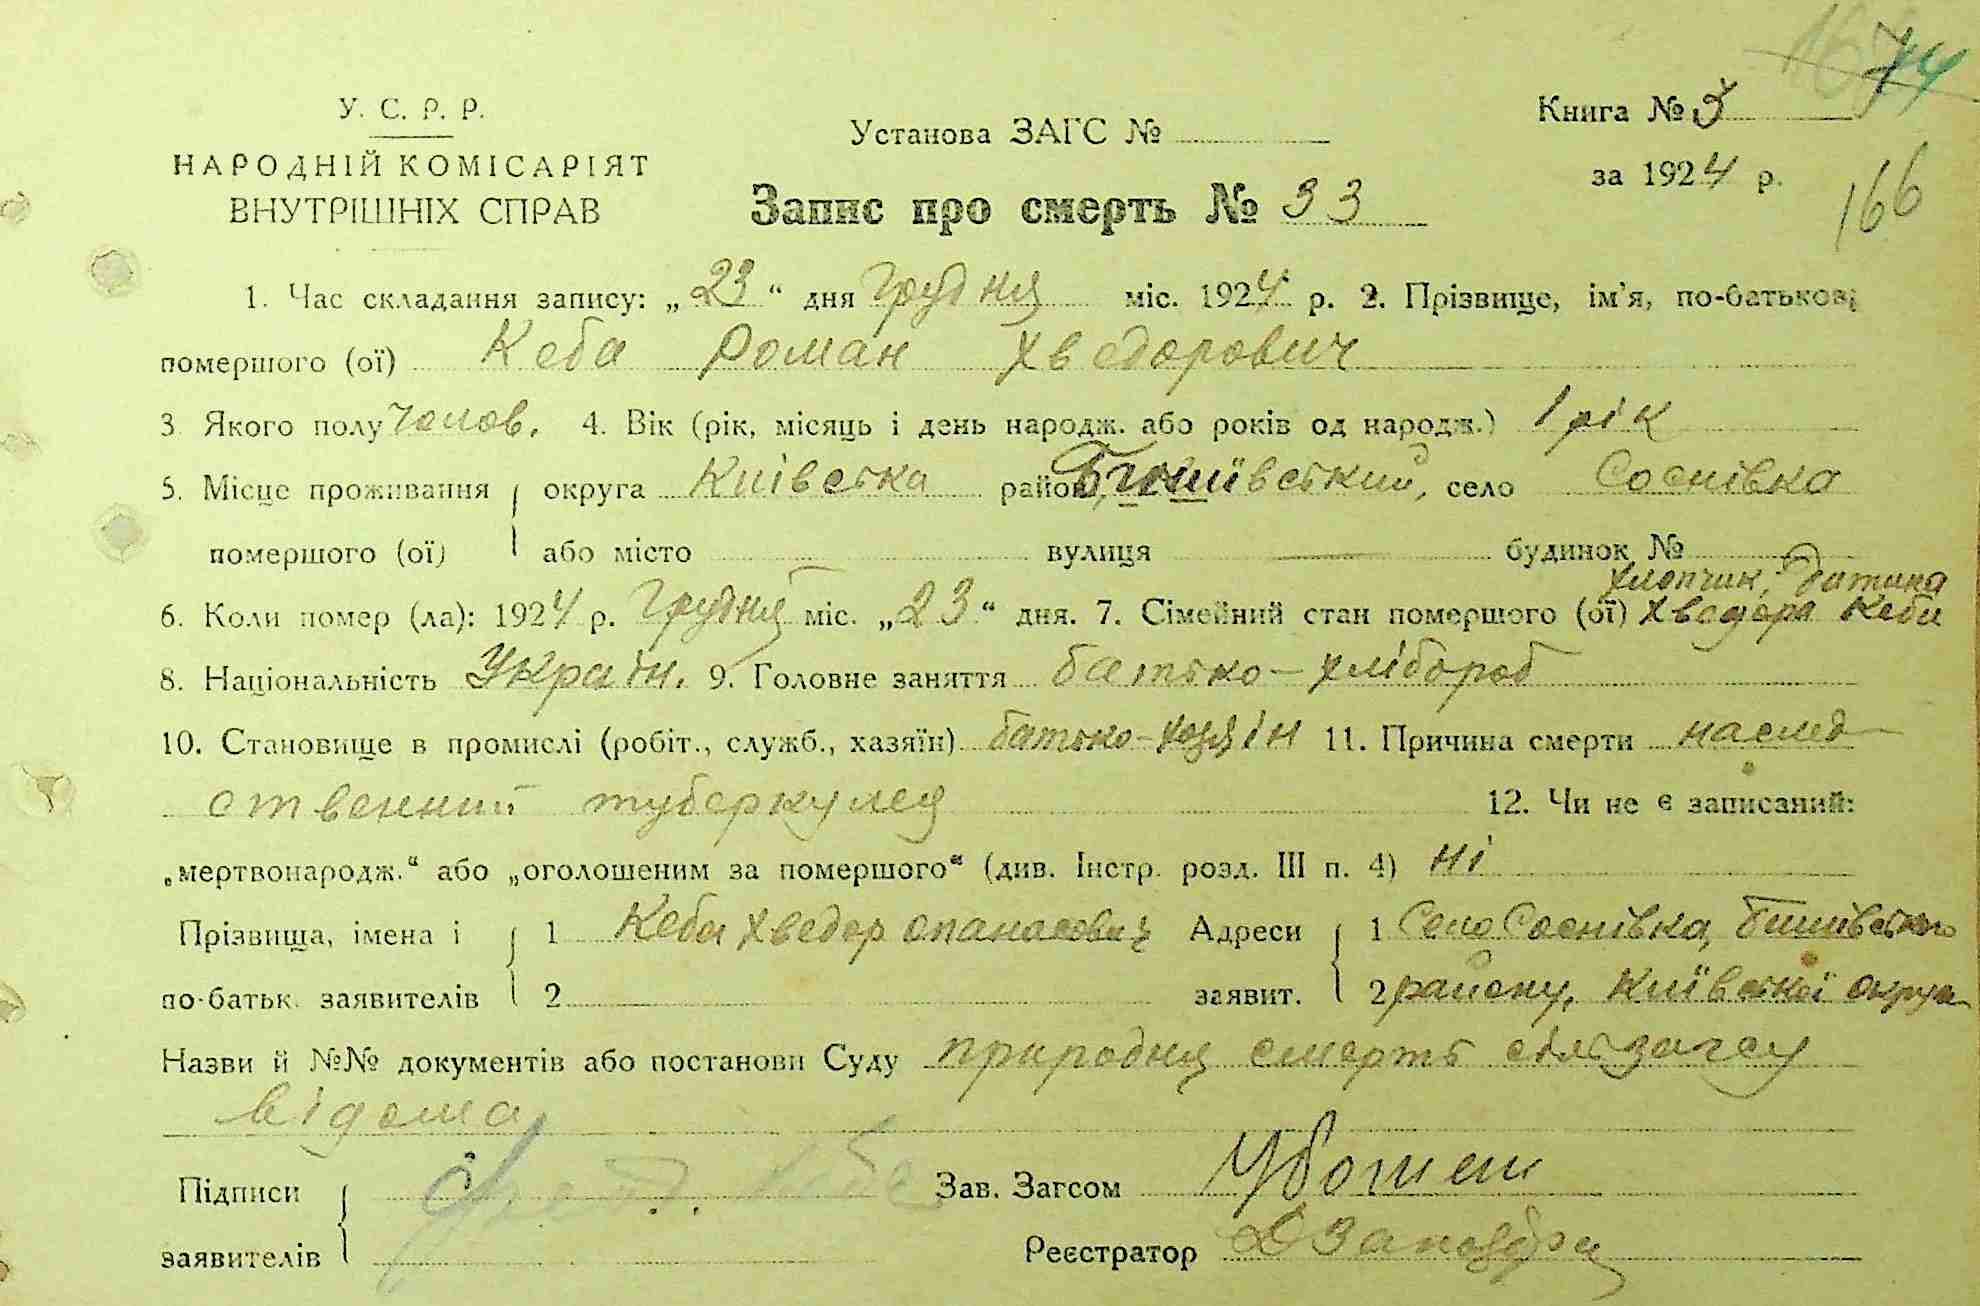 74
У. С. Р. Р.
НАРОДНІЙ КОМІСАРІЯТ
ВНУТРІШНІХ СПРАВ
Установа ЗАГС №
Книга № 3
за 1924 р.
166
Запис про смерть № 33
1. Час складання запису: „23“ дня Грудня міс. 1924 р. 2. Прізвище, ім'я, по-батькові
помершого (ої) Кеба Роман Хведорович
3. Якого полу чолов. 4. Вік (рік, місяць і день народж. або років од народж.) 1 рік
5. Місце проживання округа Київська район, Бишівський, село Соснівка
помершого (ої) або місто вулиця будинок №
хлопчик, батька
6. Коли помер (ла): 1924 р. Грудня міс. „23“ дня. 7. Сімейний стан помершого (ої) Хведора Кеби
8. Національність Україн. 9. Головне заняття батько-хлібороб
10. Становище в промислі (робіт., служб., хазяїн) батько-хозяін 11. Причина смерти наслед-
ственний туберкулез 12. Чи не є записаний:
„мертвонародж.“ або „оголошеним за помершого“ (див. Інстр. розд. III п. 4) ні
Прізвища, імена і 1 Кеба Хведор Опанасович Адреси 1 Село Соснівка, Бишівського
по-батьк. заявителів 2 заявит. 2 району, Київської округи
Назви й №№ документів або постанови Суду природня смерть сільзагсу
відома
Підписи Зав. Загсом
заявителів Реєстратор